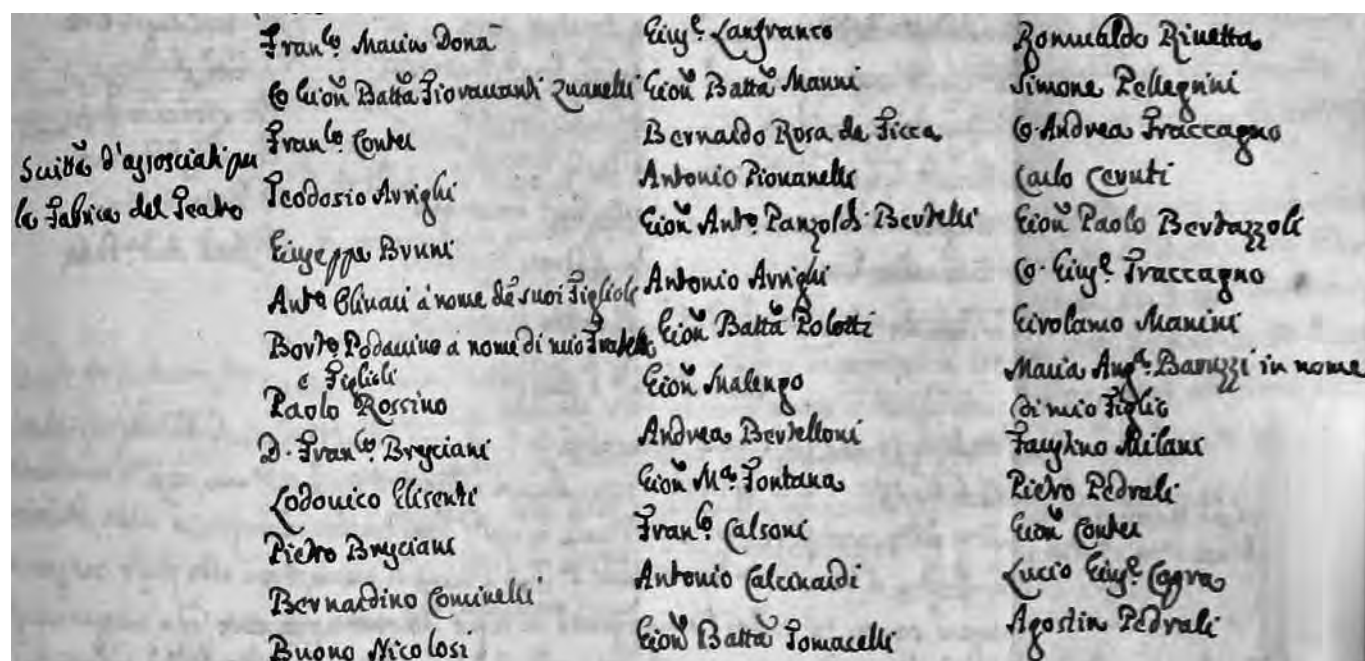 d'associati per
la Fabrica del Teatro
Fran.co Maria Donà
Co Gioñ Batta Fioravanti Zuanelli
Fran.co Conter
Teodosio Avrighi
Giuseppe Bruni
Ant.o Olivari à nome dé suoi Figlioli
Bort.o Podavino a nome di mio Fratello
e Figlioli
Paolo Rossino
D. Fran.co Bresciani
Lodovico Elisenti
Pietro Bresciani
Bernardino Cominelli
Buono Nicolosi
Gius.e Lanfranco
Gioñ Batta Manni
Bernardo Rosa de Ficca
Antonio Piovanelli
Gioñ Ant.o Panzoldi Bertelli
Antonio Avrighi
Gioñ Batta Polotti
Gioñ Malengo
Andrea Bertelloni
Gioñ M.a Fontana
Fran.co Calsoni
Antonio Calcinardi
Gioñ Batta Tomacelli
Romualdo Rivetta
Simone Pellegrini
Co. Andrea Fraccagno
Carlo Ceruti
Gioñ Paolo Bertazzoli
Co. Gius.e Fraccagno
Girolamo Manini
Maria Ang.a Baruzzi in nome
di mio Figlio
Faustino Milani
Pietro Pedrali
Gioñ Conter
Lucio Gius.e Capra
Agostin Pedrali